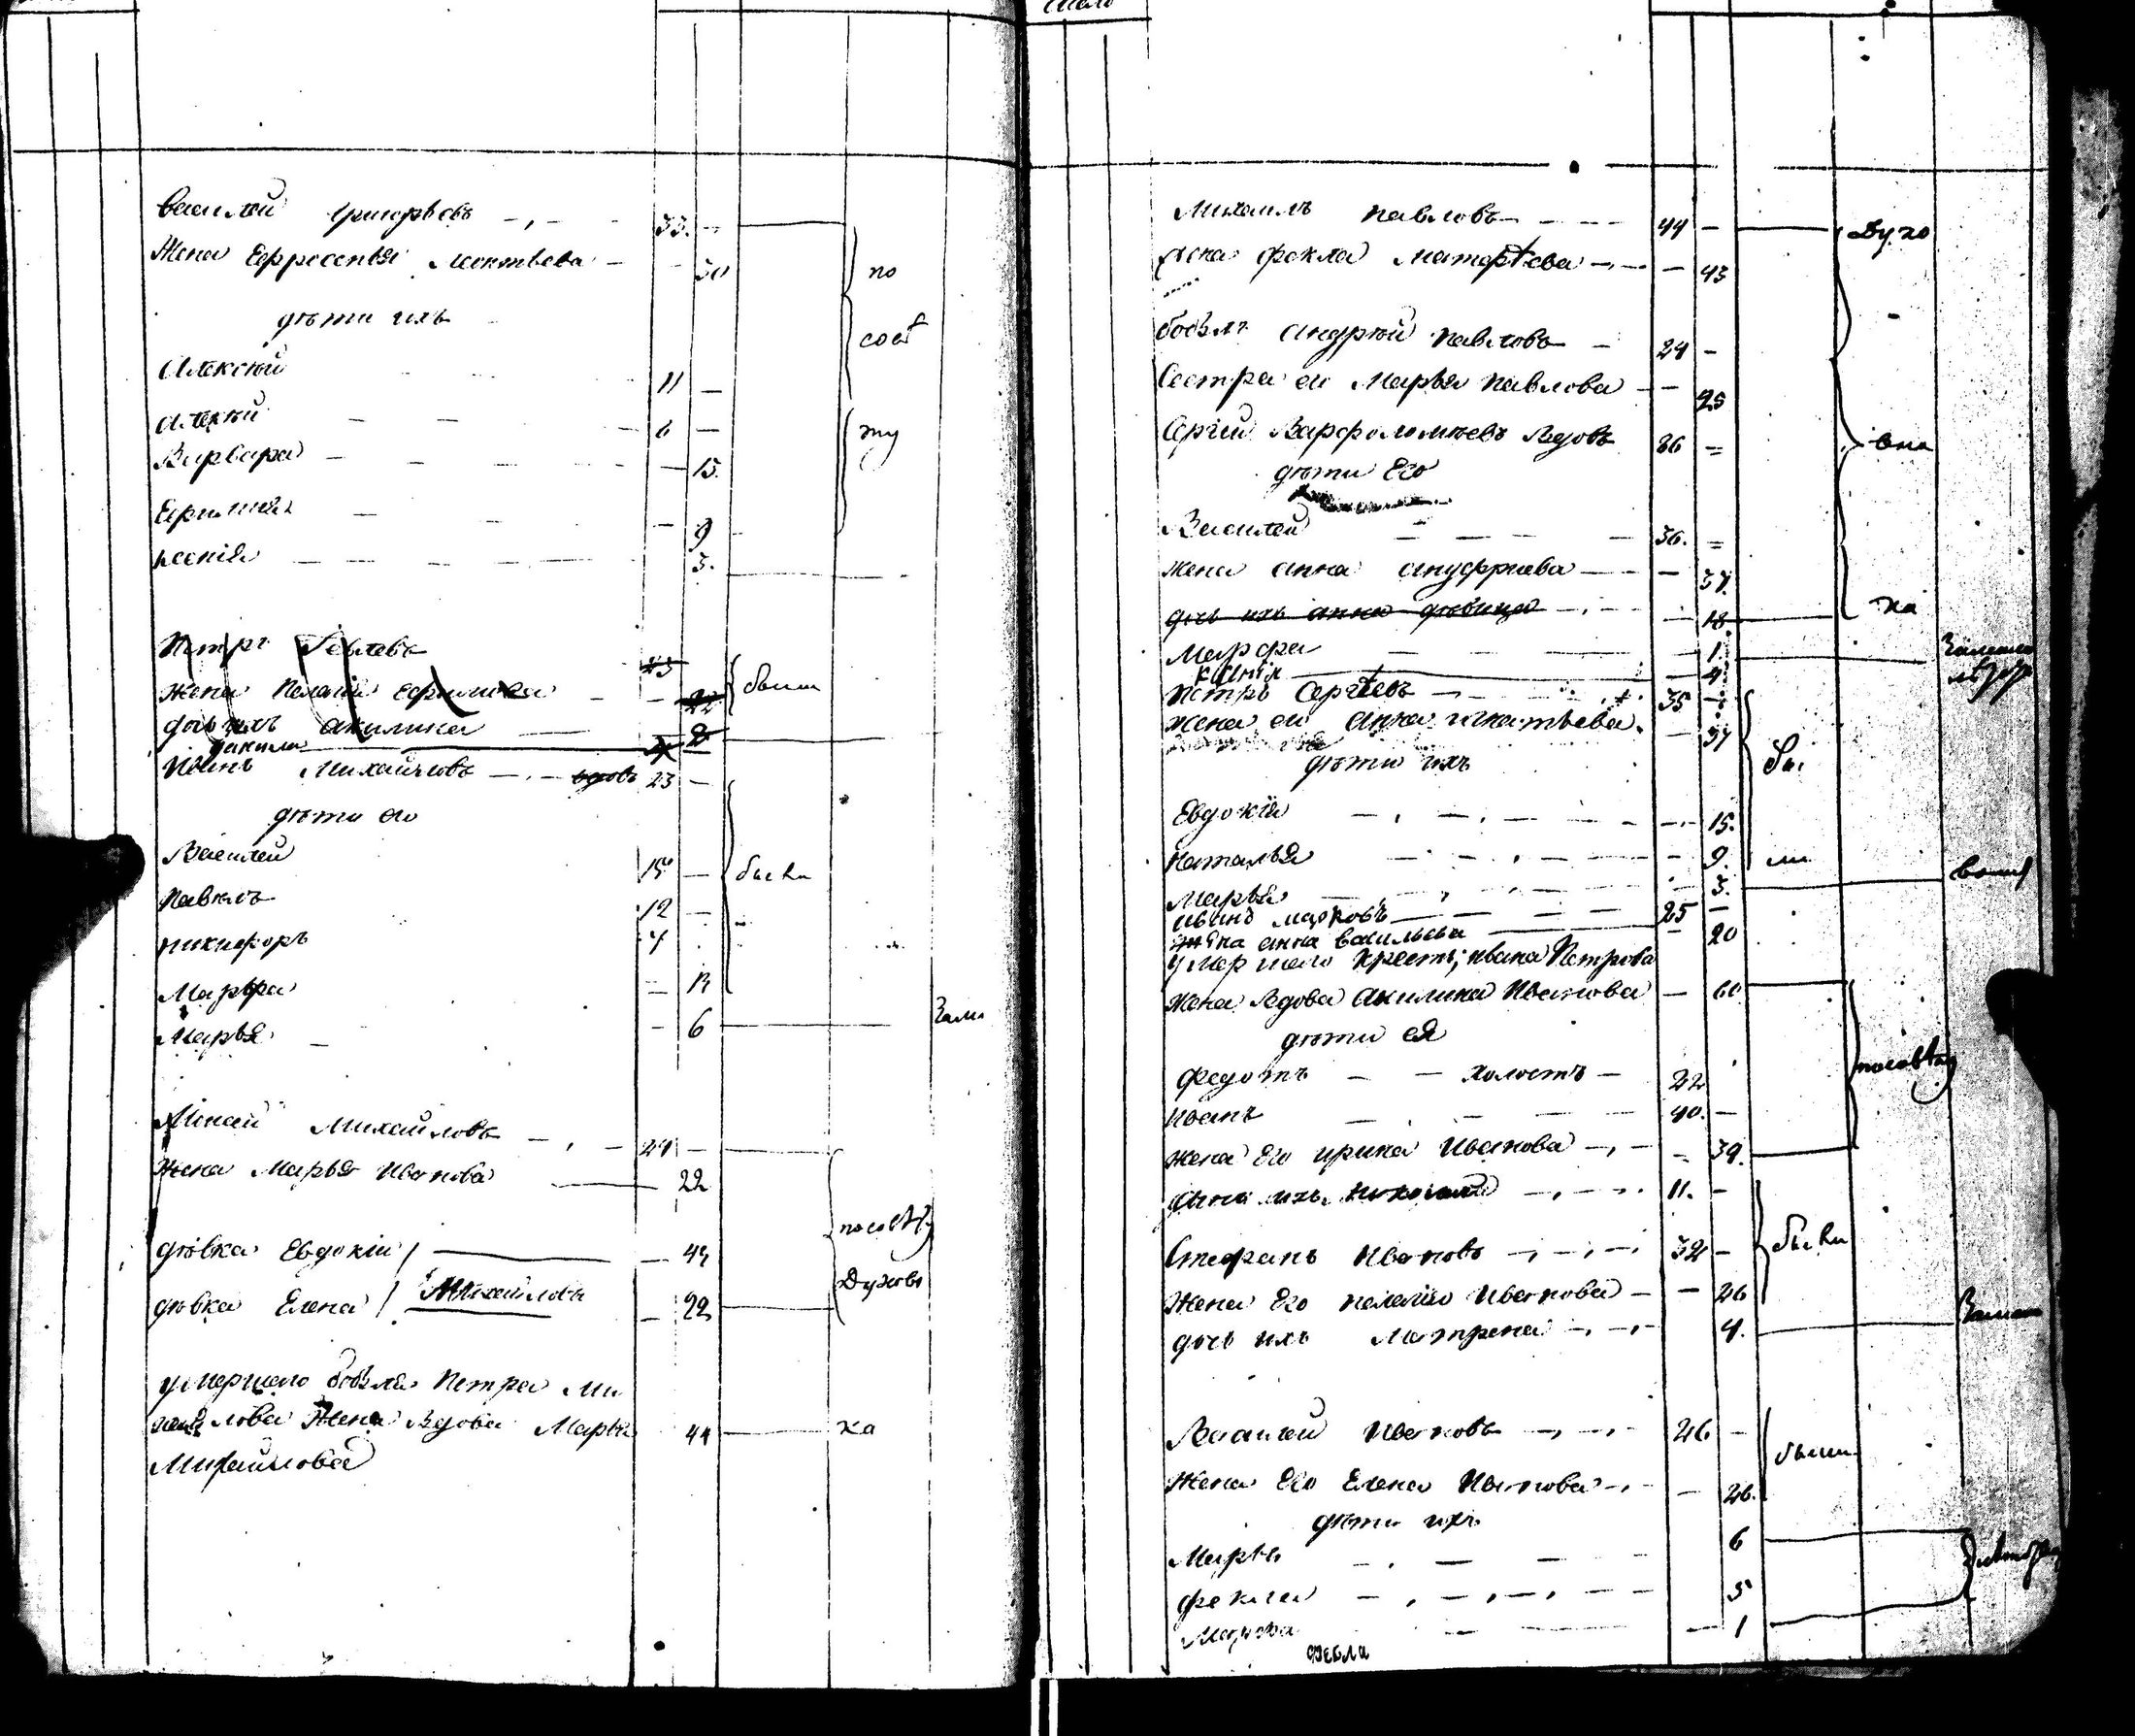 Василей Григорьевъ 33. -
Жена Ефросенья Леонтьева - 30
дѣти ихъ
Алексѣй 11 -
Алексѣй 6 -
Варвара - 15.
Ефимия - 9
ксенія 3.
по
сов
ту
Петръ 43
Жена Пелагия Ефимова - 22
дочь ихъ акилина 2
данила
были
Иванъ Михайловъ вдовъ 23 -
дѣти его
Василей 15 -
Павелъ 12 -
никифоръ 7
Марфа - 12
Марья - 6
были
Михайловъ 24 -
Жена Марья Иванова 22
дѣвка Евдокия - 43
дѣвка Елена Михайловы - 22
посовѣту
Духовъ
умершаго бобыля Петра Ми
хайлова Жена Вдова Марья 44 ка
Михайлова
Михаилъ павловъ 44 -
жена фекла Матфѣева - 43
бобыль андрѣй павловъ - 24 -
Сестра его Марья павлова - 25
Сергий Варфоломѣевъ Вдовъ 86 =
дѣти Его
Василей 36. =
жена анна ануфриева - 37.
дочь ихъ анна дѣвица - 18
Духо
вна
ка
Марфа 1.
ксѣнія 4
Петръ Сергѣевъ 35 -
жена его Анна игнатьева. - 37
дѣти ихъ
Евдокия 15.
наталья 9.
Марья 3.
бы
ли
иванъ марковъ 25 -
жена анна васильева - 20
умершаго крест; ивана Петрова
Жена Вдова Акилина Иванова - 60
дѣти ея
федотъ холостъ 22
Иванъ 40. -
жена Его ирина Иванова - 39.
посовѣту
сынъ ихъ николай 11. -
Стефанъ Ивановъ 32 -
Жена Его пелагия Иванова - 26
дочь ихъ Матрена 4.
были
Василей Ивановъ 26 -
Жена Его Елена Иванова - 26.
дѣти ихъ
Марья 6
фекла 5
Марфа 1
фекла
были